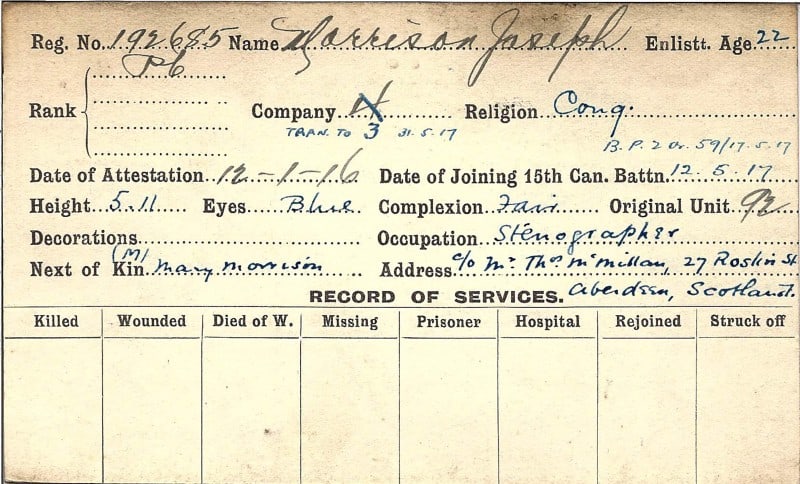 Reg. No. 192685 Name Morrison Joseph Enlistt. Age 22
Pte
Rank Company 4 Religion Cong.
TRAN. TO 3 31.5.17
B.P. 2 Or. 59/17.5.17
Date of Attestation 12-1-16 Date of Joining 15th Can. Battn. 12.5.17
Height 5.11 Eyes Blue Complexion Fair Original Unit 92
Decorations Occupation Stenographer
Next of Kin (M) Mary Morrison Address c/o Mr Thos McMillan, 27 Roslin St
Aberdeen, Scotland.
RECORD OF SERVICES.
Killed Wounded Died of W. Missing Prisoner Hospital Rejoined Struck off